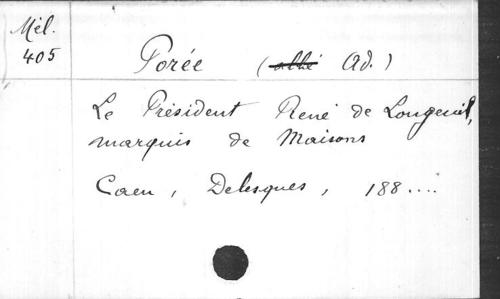 Mél.
405
Porée (abbé Ad.)
Le Président René de Longueil,
marquis de Maisons
Caen, Delesques, 188....